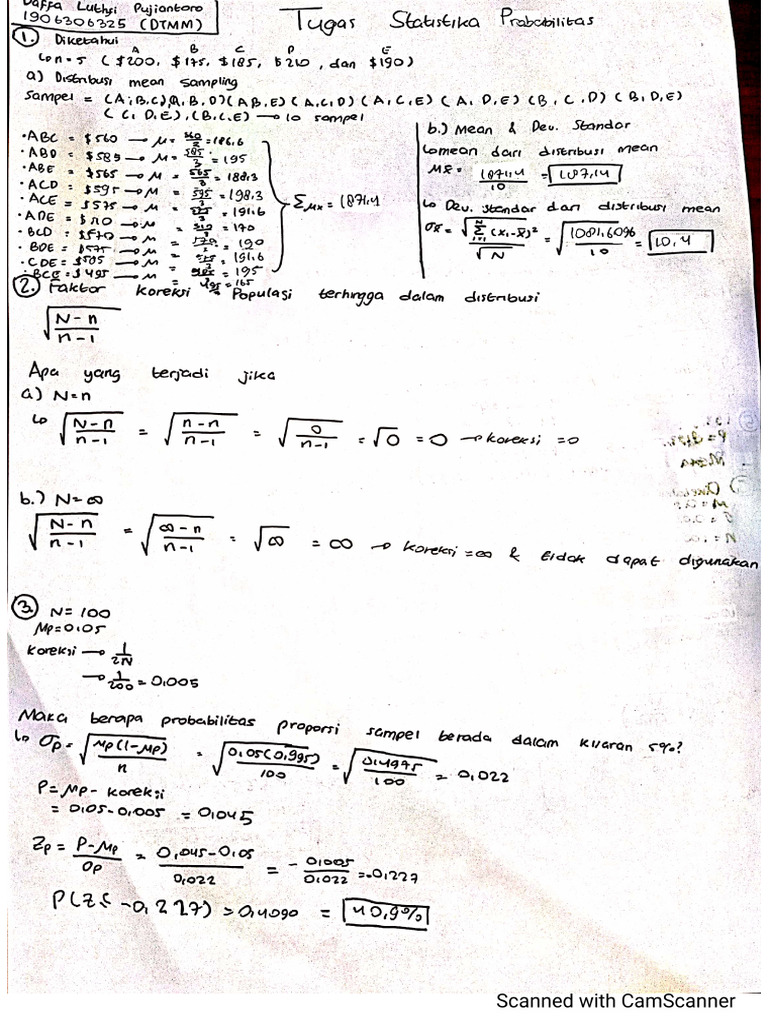 Daffa Luthfi Pujiantoro
1906306325 (DTMM)
Tugas Statistika Probabilitas
1. Diketahui
A B C D E
↳ n=5 ($200, $175, $185, $210, dan $190)
a) Distribusi mean sampling
Sampel = (A,B,C)(A,B,D)(A,B,E)(A,C,D)(A,C,E)(A,D,E)(B,C,D)(B,D,E)
(C,D,E),(B,C,E) → 10 sampel
• ABC = $560 → μ = 560/3 = 186,6
• ABD = $585 → μ = 585/3 = 195
• ABE = $565 → μ = 565/3 = 188,3
• ACD = $595 → μ = 595/3 = 198,3
• ACE = $575 → μ = 575/3 = 191,6
• ADE = $510 → μ = 510/3 = 170
• BCD = $570 → μ = 570/3 = 190
• BDE = $575 → μ = 575/3 = 191,6
• CDE = $585 → μ = 585/3 = 195
• BCE = $495 → μ = 495/3 = 165
Σμx̄ = 1871,4
b.) Mean & Dev. Standar
↳ mean dari distribusi mean
μx̄ = 1871,4/10 = 187,14
↳ Dev. standar dari distribusi mean
σx̄ = √(Σ(xi-x̄)²)/√N = √(1081,6096/10) = 10,4
2. Faktor koreksi → Populasi terhingga dalam distribusi
√((N-n)/(n-1))
Apa yang terjadi jika
a) N=n
↳ √((N-n)/(n-1)) = √((n-n)/(n-1)) = √(0/(n-1)) = √0 = 0 → koreksi = 0
b.) N=∞
√((N-n)/(n-1)) = √((∞-n)/(n-1)) = √∞ = ∞ → koreksi = ∞ & tidak dapat digunakan
3. N= 100
μp=0,05
Koreksi → 1/2N
→ 1/200 = 0,005
Maka berapa probabilitas proporsi sampel berada dalam kisaran 5%?
↳ σp = √(μp(1-μp)/n) = √(0,05(0,995)/100) = √(0,04975/100) = 0,022
P = μp - koreksi
= 0,05-0,005 = 0,045
Zp = (P-μp)/σp = (0,045-0,05)/0,022 = -0,005/0,022 = -0,227
P(Z≤ -0,227) = 0,4090 = 40,9%
Scanned with CamScanner